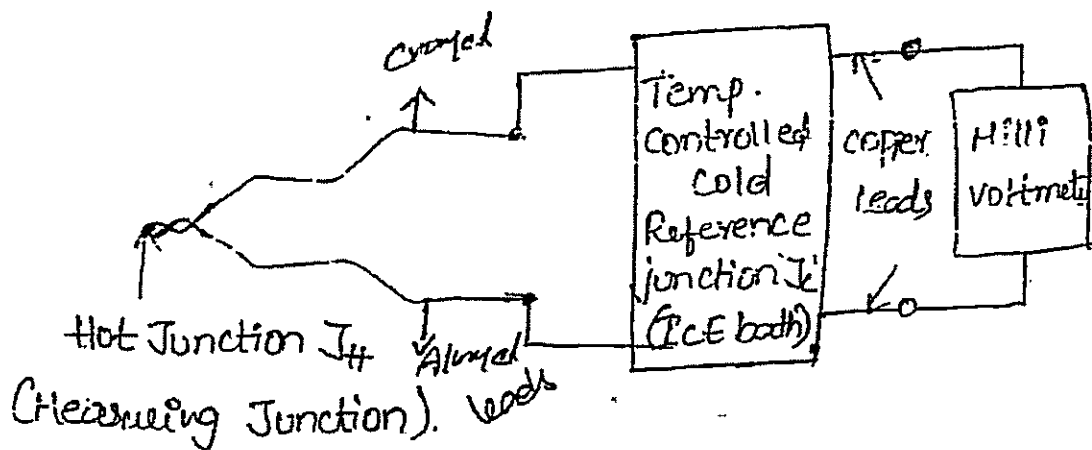 Cromel
Temp.
controlled
cold
Reference
junction Jc
(IcE bath)
copper
leads
Milli
voltmete
Hot Junction JH
(Measuring Junction).
Alumel
leads